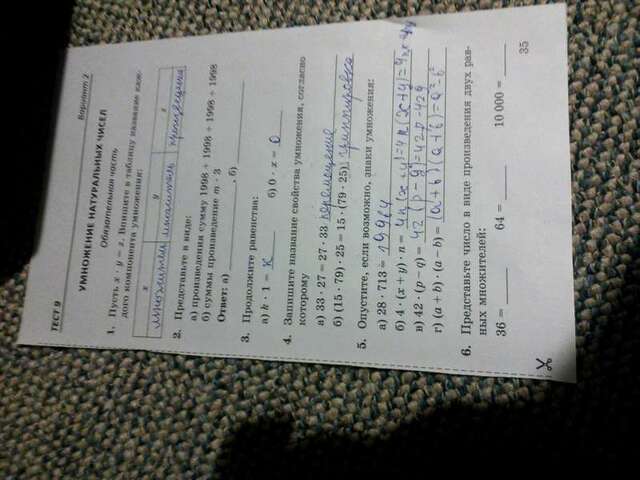 ТЕСТ 9
Вариант 2
УМНОЖЕНИЕ НАТУРАЛЬНЫХ ЧИСЕЛ
Обязательная часть
1. Пусть x · y = z. Впишите в таблицу название каж-
дого компонента умножения:
x y z
множитель множитель произведение
2. Представьте в виде:
а) произведения сумму 1998 + 1998 + 1998 + 1998
б) суммы произведение m · 3
Ответ: а) , б)
3. Продолжите равенства:
а) k · 1 = к б) 0 · x = 0
4. Запишите название свойства умножения, согласно
которому
а) 33 · 27 = 27 · 33
б) (15 · 79) · 25 = 15 · (79 · 25) группировка
5. Опустите, если возможно, знаки умножения:
а) 28 · 713 = 19964
б) 4 · (x + y) · n = 4n(x+y)=4nx
в) 42 · (p − q) = 42(p-q)=42p-42q
г) (a + b) · (a − b) =
6. Представьте число в виде произведения двух рав-
ных множителей:
36 = 64 = 10 000 =
35